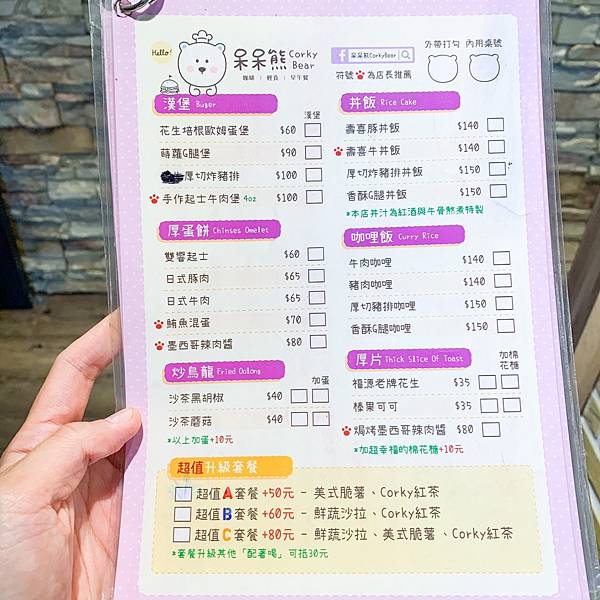 Hello!
呆呆熊 Corky Bear
咖啡 | 輕食 | 早午餐
f 呆呆熊CorkyBear
符號 為店長推薦
外帶打勾 內用桌號
漢堡 Buger
漢堡
花生培根歐姆蛋堡 $60
蒔蘿G腿堡 $90
厚切炸豬排 $100
手作起士牛肉堡 4oz $100
厚蛋餅 Chinses Omelet
雙響起士 $60
日式豚肉 $65
日式牛肉 $65
鮪魚混蛋 $70
墨西哥辣肉醬 $80
炒烏龍 Fried Oolong
加蛋
沙茶黑胡椒 $40
沙茶蘑菇 $40
*以上加蛋+10元
丼飯 Rice Cake
壽喜豚丼飯 $140
壽喜牛丼飯 $140
厚切炸豬排丼飯 $150
香酥G腿丼飯 $150
*本店丼汁為紅酒與牛骨熬煮特製
咖哩飯 Curry Rice
牛肉咖哩 $140
豬肉咖哩 $140
厚切豬排咖哩 $150
香酥G腿咖哩 $150
厚片 Thick Slice Of Toast
加棉花糖
福源老牌花生 $35
榛果可可 $35
焗烤墨西哥辣肉醬 $80
*加超幸福的棉花糖+10元
超值升級套餐
超值A套餐+50元 - 美式脆薯、Corky紅茶
超值B套餐+60元 - 鮮蔬沙拉、Corky紅茶
超值C套餐+80元 - 鮮蔬沙拉、美式脆薯、Corky紅茶
*套餐升級其他「配著喝」可抵30元